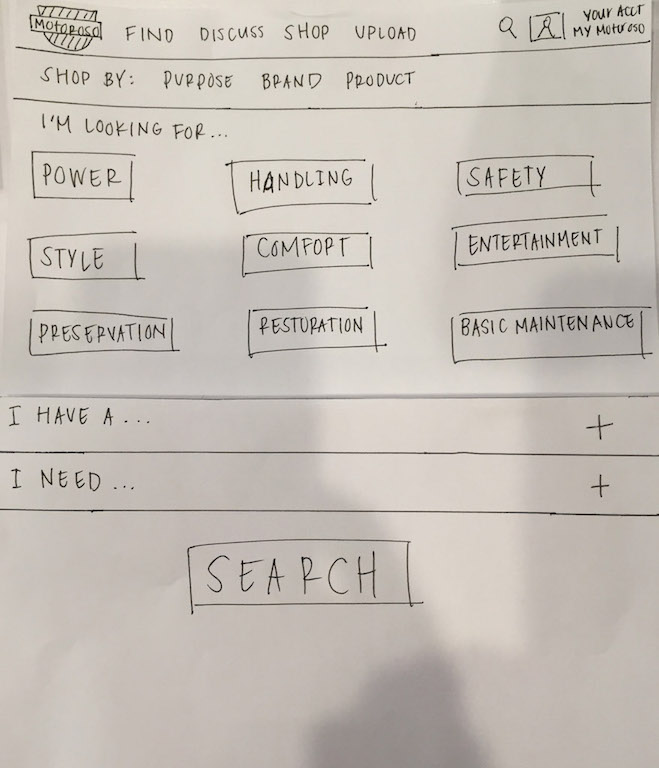 MOTOROSO FIND DISCUSS SHOP UPLOAD YOUR ACCT
MY MOTOROSO
SHOP BY: PURPOSE BRAND PRODUCT
I'M LOOKING FOR...
POWER HANDLING SAFETY
STYLE COMFORT ENTERTAINMENT
PRESERVATION RESTORATION BASIC MAINTENANCE
I HAVE A... +
I NEED... +
SEARCH